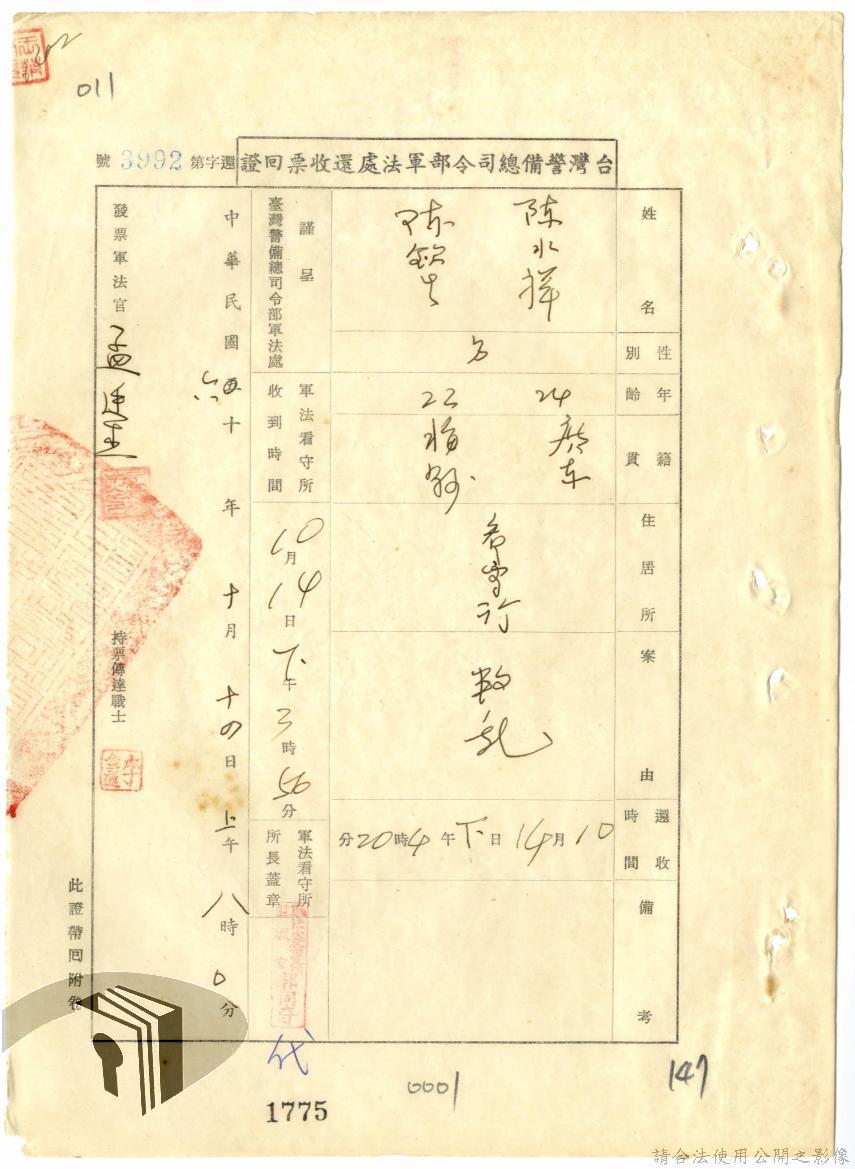 011
台灣警備總司令部軍法處還收票回證
還字第3992號
姓名
陈水祥
陈
性別
男
年齡
24
22
籍貫
廣东
住居所
案由
叛乱
還收時間
10月14日下午4時20分
備考
謹呈
臺灣警備總司令部軍法處
軍法看守所收到時間
10月14日下午3時56分
軍法看守所所長蓋章
代
中華民國五十六年十月十四日上午八時0分
發票軍法官
孟廷
持票傳達戰士
此證帶回附卷
1775
0001
147
請合法使用公開之影像